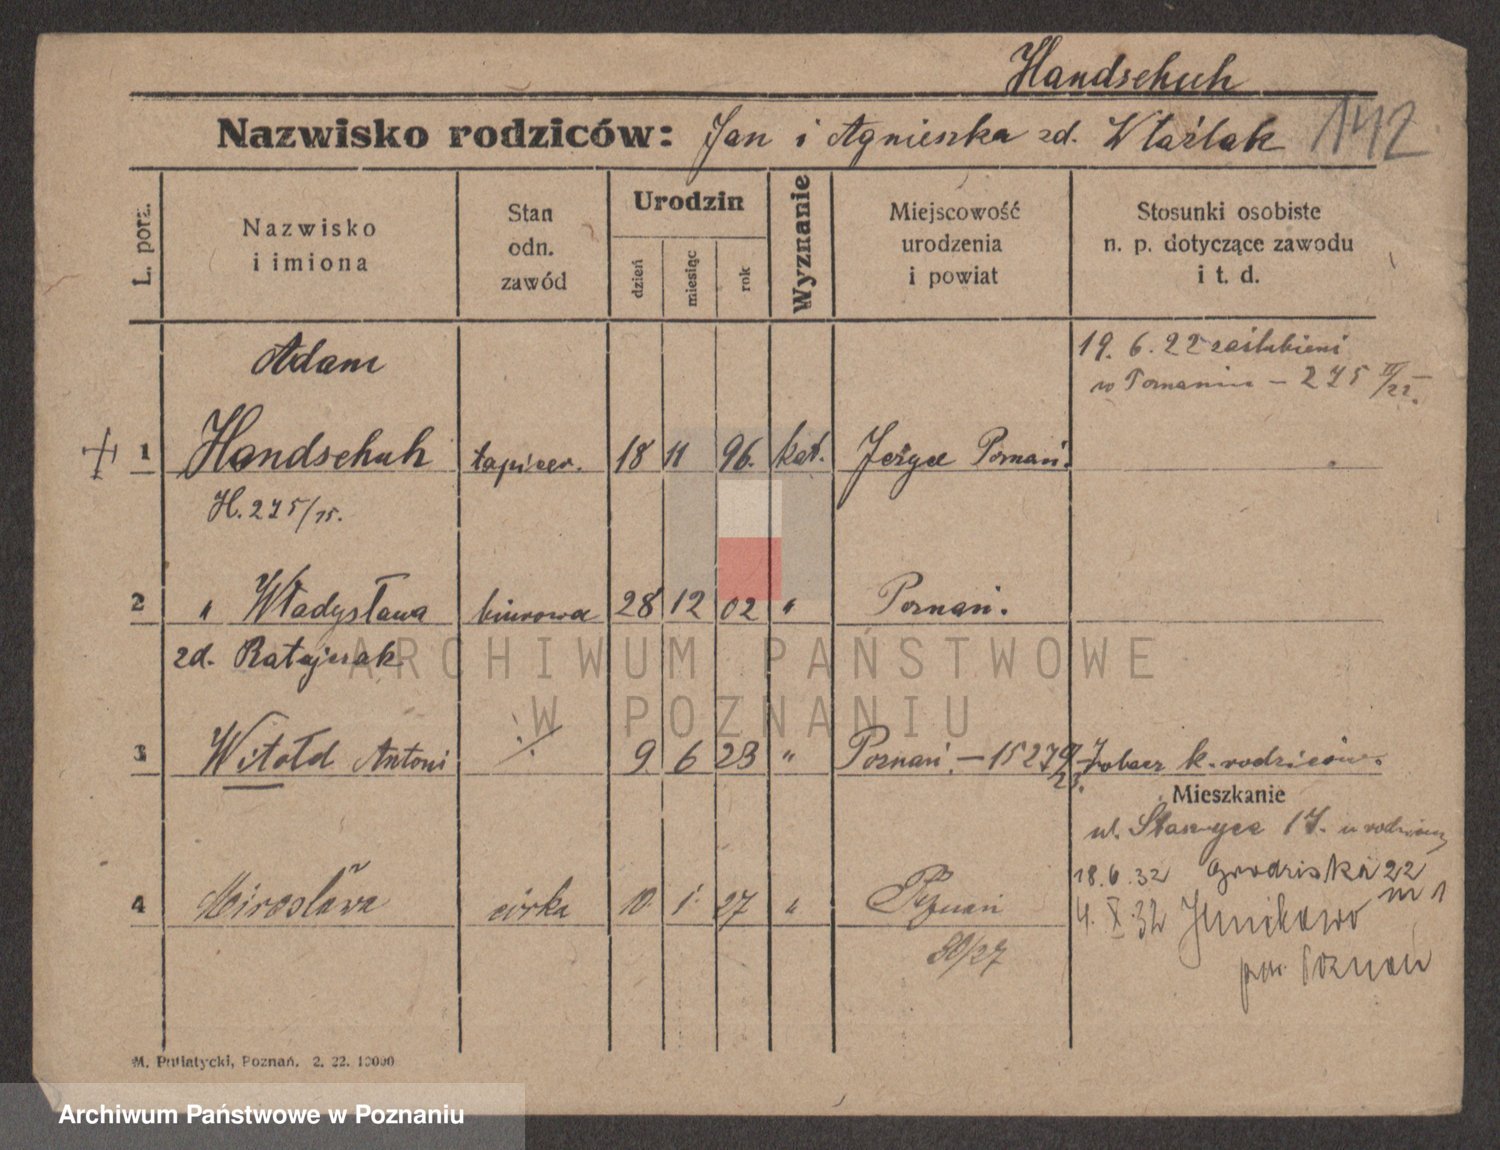 Handschuh
Nazwisko rodziców: Jan i Agnieszka zd. Wlaźlak 142
L. porz.
Nazwisko
i imiona
Stan
odn.
zawód
Urodzin
dzień
miesiąc
rok
Wyznanie
Miejscowość
urodzenia
i powiat
Stosunki osobiste
n. p. dotyczące zawodu
i t. d.
Adam
19. 6. 22 zaślubieni
w Poznaniu — 275 /22.
1 Handschuh tapicer. 18 11 96. kat. Jeżyce Poznań.
H. 275/15.
2 " Władysława biurowa 28 12 02 " Poznań.
zd. Ratajczak
3 Witołd Antoni ·/· 9 6 23 " Poznań. — 15279/23. Zobacz k. rodziców.
Mieszkanie
ul. 17. u
18. 6. 32 Grodziska 22
m 1
4 Mirosława córka 10 1 27 " Poznań
4. X. 32 Junikowo
80/27
pow. Poznań
M. Putiatycki, Poznań. 2. 22. 10000
ARCHIWUM PAŃSTWOWE
W POZNANIU
Archiwum Państwowe w Poznaniu